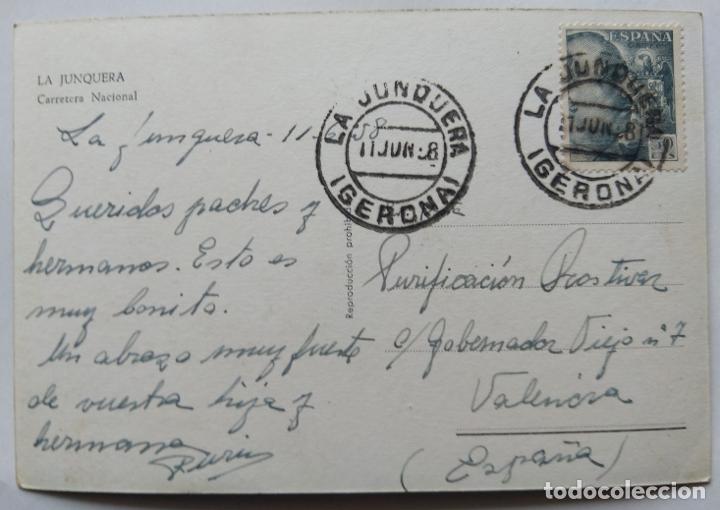 LA JUNQUERA
Carretera Nacional
La Junquera - 11-6-58
Queridos padres y
hermanos. Esto es
muy bonito.
Un abrazo muy fuerte
de vuestra hija y
hermana
Reproducción prohibi
LA JUNQUERA
11 JUN 58
(GERONA)
ESPAÑA
LA JUNQUERA
11 JUN 58
(GERONA)
Purificación
c/ Gobernador Viejo nº 7
Valencia
(España)
todocoleccion.net